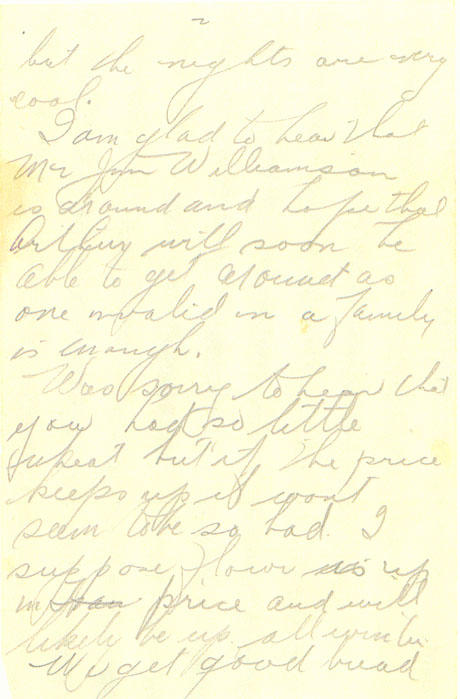 2
but the nights are very
cool.
I am glad to hear that
Mr Jim Williamson
is around and hope that
Arthur will soon be
able to get around as
one invalid in a family
is enough.
Was sorry to hear that
you had so little
wheat but if the price
keeps up it wont
seem to be so bad. I
suppose flour is up
in price and will
likely be up all winter.
We get good bread